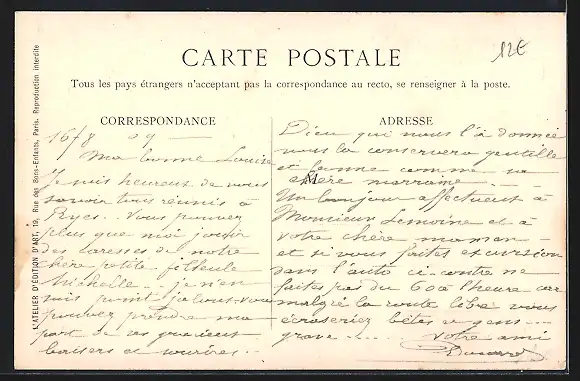 12€
CARTE POSTALE
Tous les pays étrangers n'acceptant pas la correspondance au recto, se renseigner à la poste.
L'ATELIER D'ÉDITION D'ART, 19, Rue des Bons-Enfants, Paris. Reproduction interdite
CORRESPONDANCE
16/8 09 —
Ma bonne Louise
Je suis heureux de vous
savoir tous réunis à
Vous pouvez
plus que moi jouir
des caresses de notre
chère petite filleule
Michelle... je n'en
suis point jaloux. vous
pouvez prendre ma
part de ses gracieux
baisers et sourires..
ADRESSE
Dieu qui nous l'a donnée
nous la conservera gentille
et bonne comme sa
M
chère marraine...
Un bonjour affectueux à
Monsieur Lemoine et à
votre chère maman
et si vous faites excursion
dans l'auto ci-contre ne
faites pas du 60 à l'heure car
malgré la route libre vous
écraseriez bêtes et gens...
grave....
Votre ami
Edouard